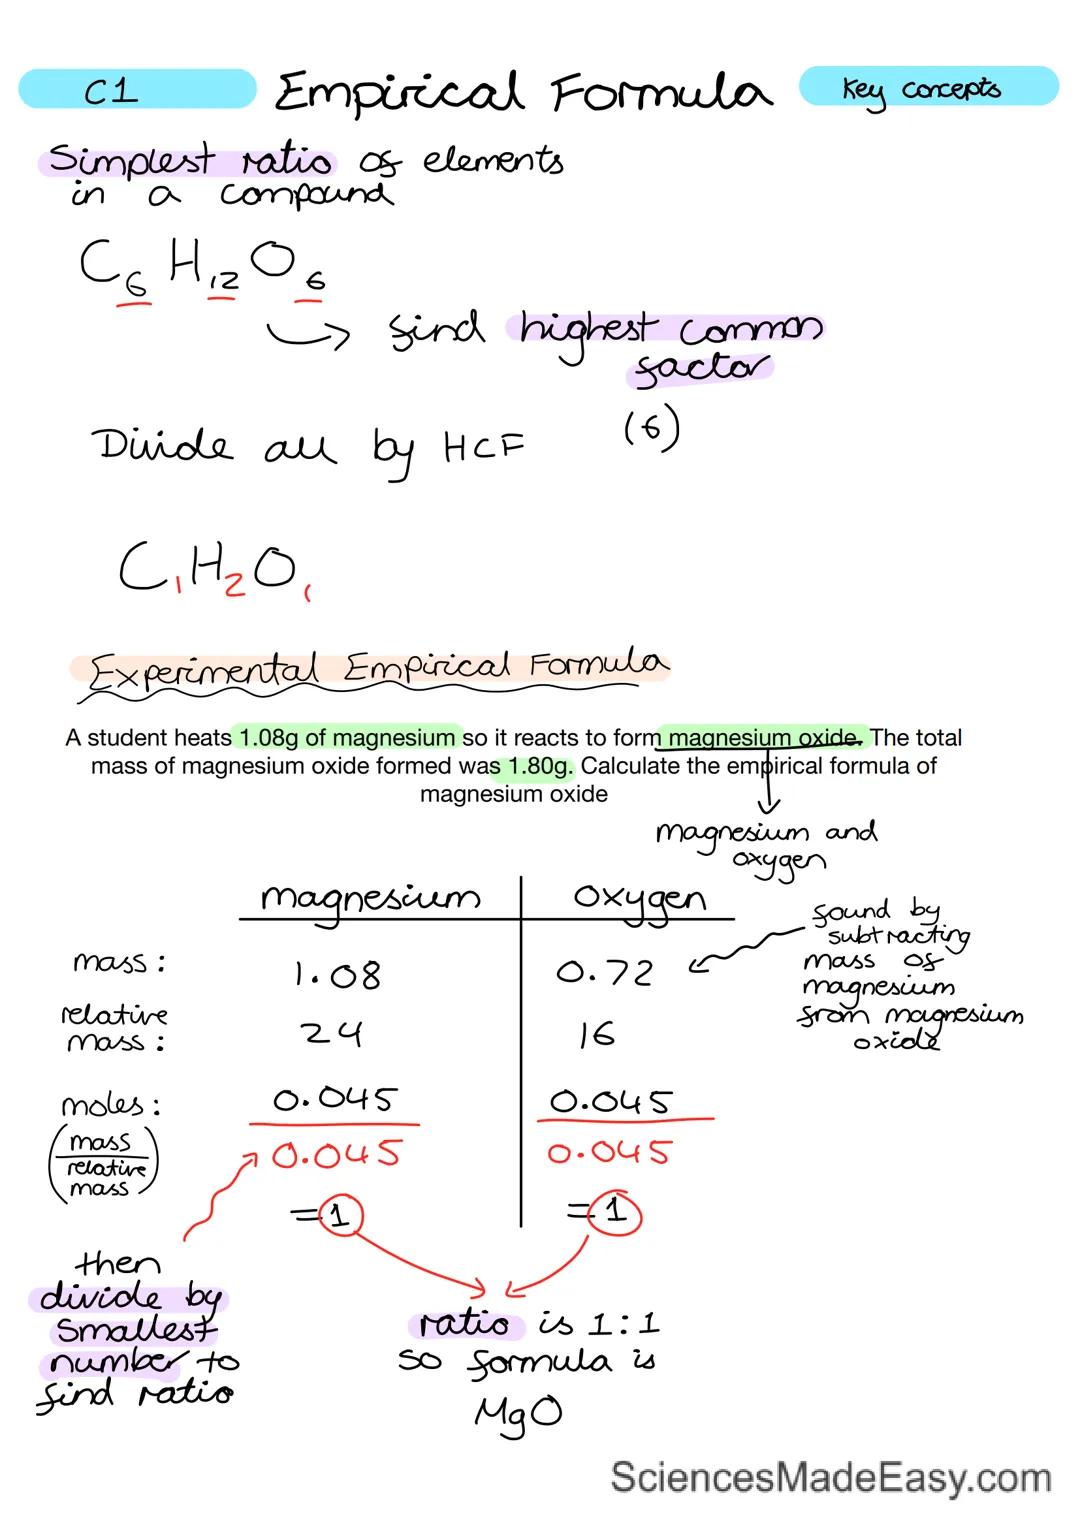 C1
Empirical Formula
Key concepts
Simplest ratio of elements
in a compound
C6 H12 O6
find highest common
factor
(6)
Divide all by HCF
C1H2O1
Experimental Empirical Formula
A student heats 1.08g of magnesium so it reacts to form magnesium oxide. The total
mass of magnesium oxide formed was 1.80g. Calculate the empirical formula of
magnesium oxide
magnesium and
oxygen
magnesium
oxygen
found by
subtracting
mass of
magnesium
from magnesium
oxide
mass:
1.08
0.72
relative
mass:
24
16
moles:
0.045
0.045
(mass
relative
mass)
0.045
0.045
=1
=1
then
divide by
smallest
number to
find ratio
ratio is 1:1
so formula is
MgO
SciencesMadeEasy.com